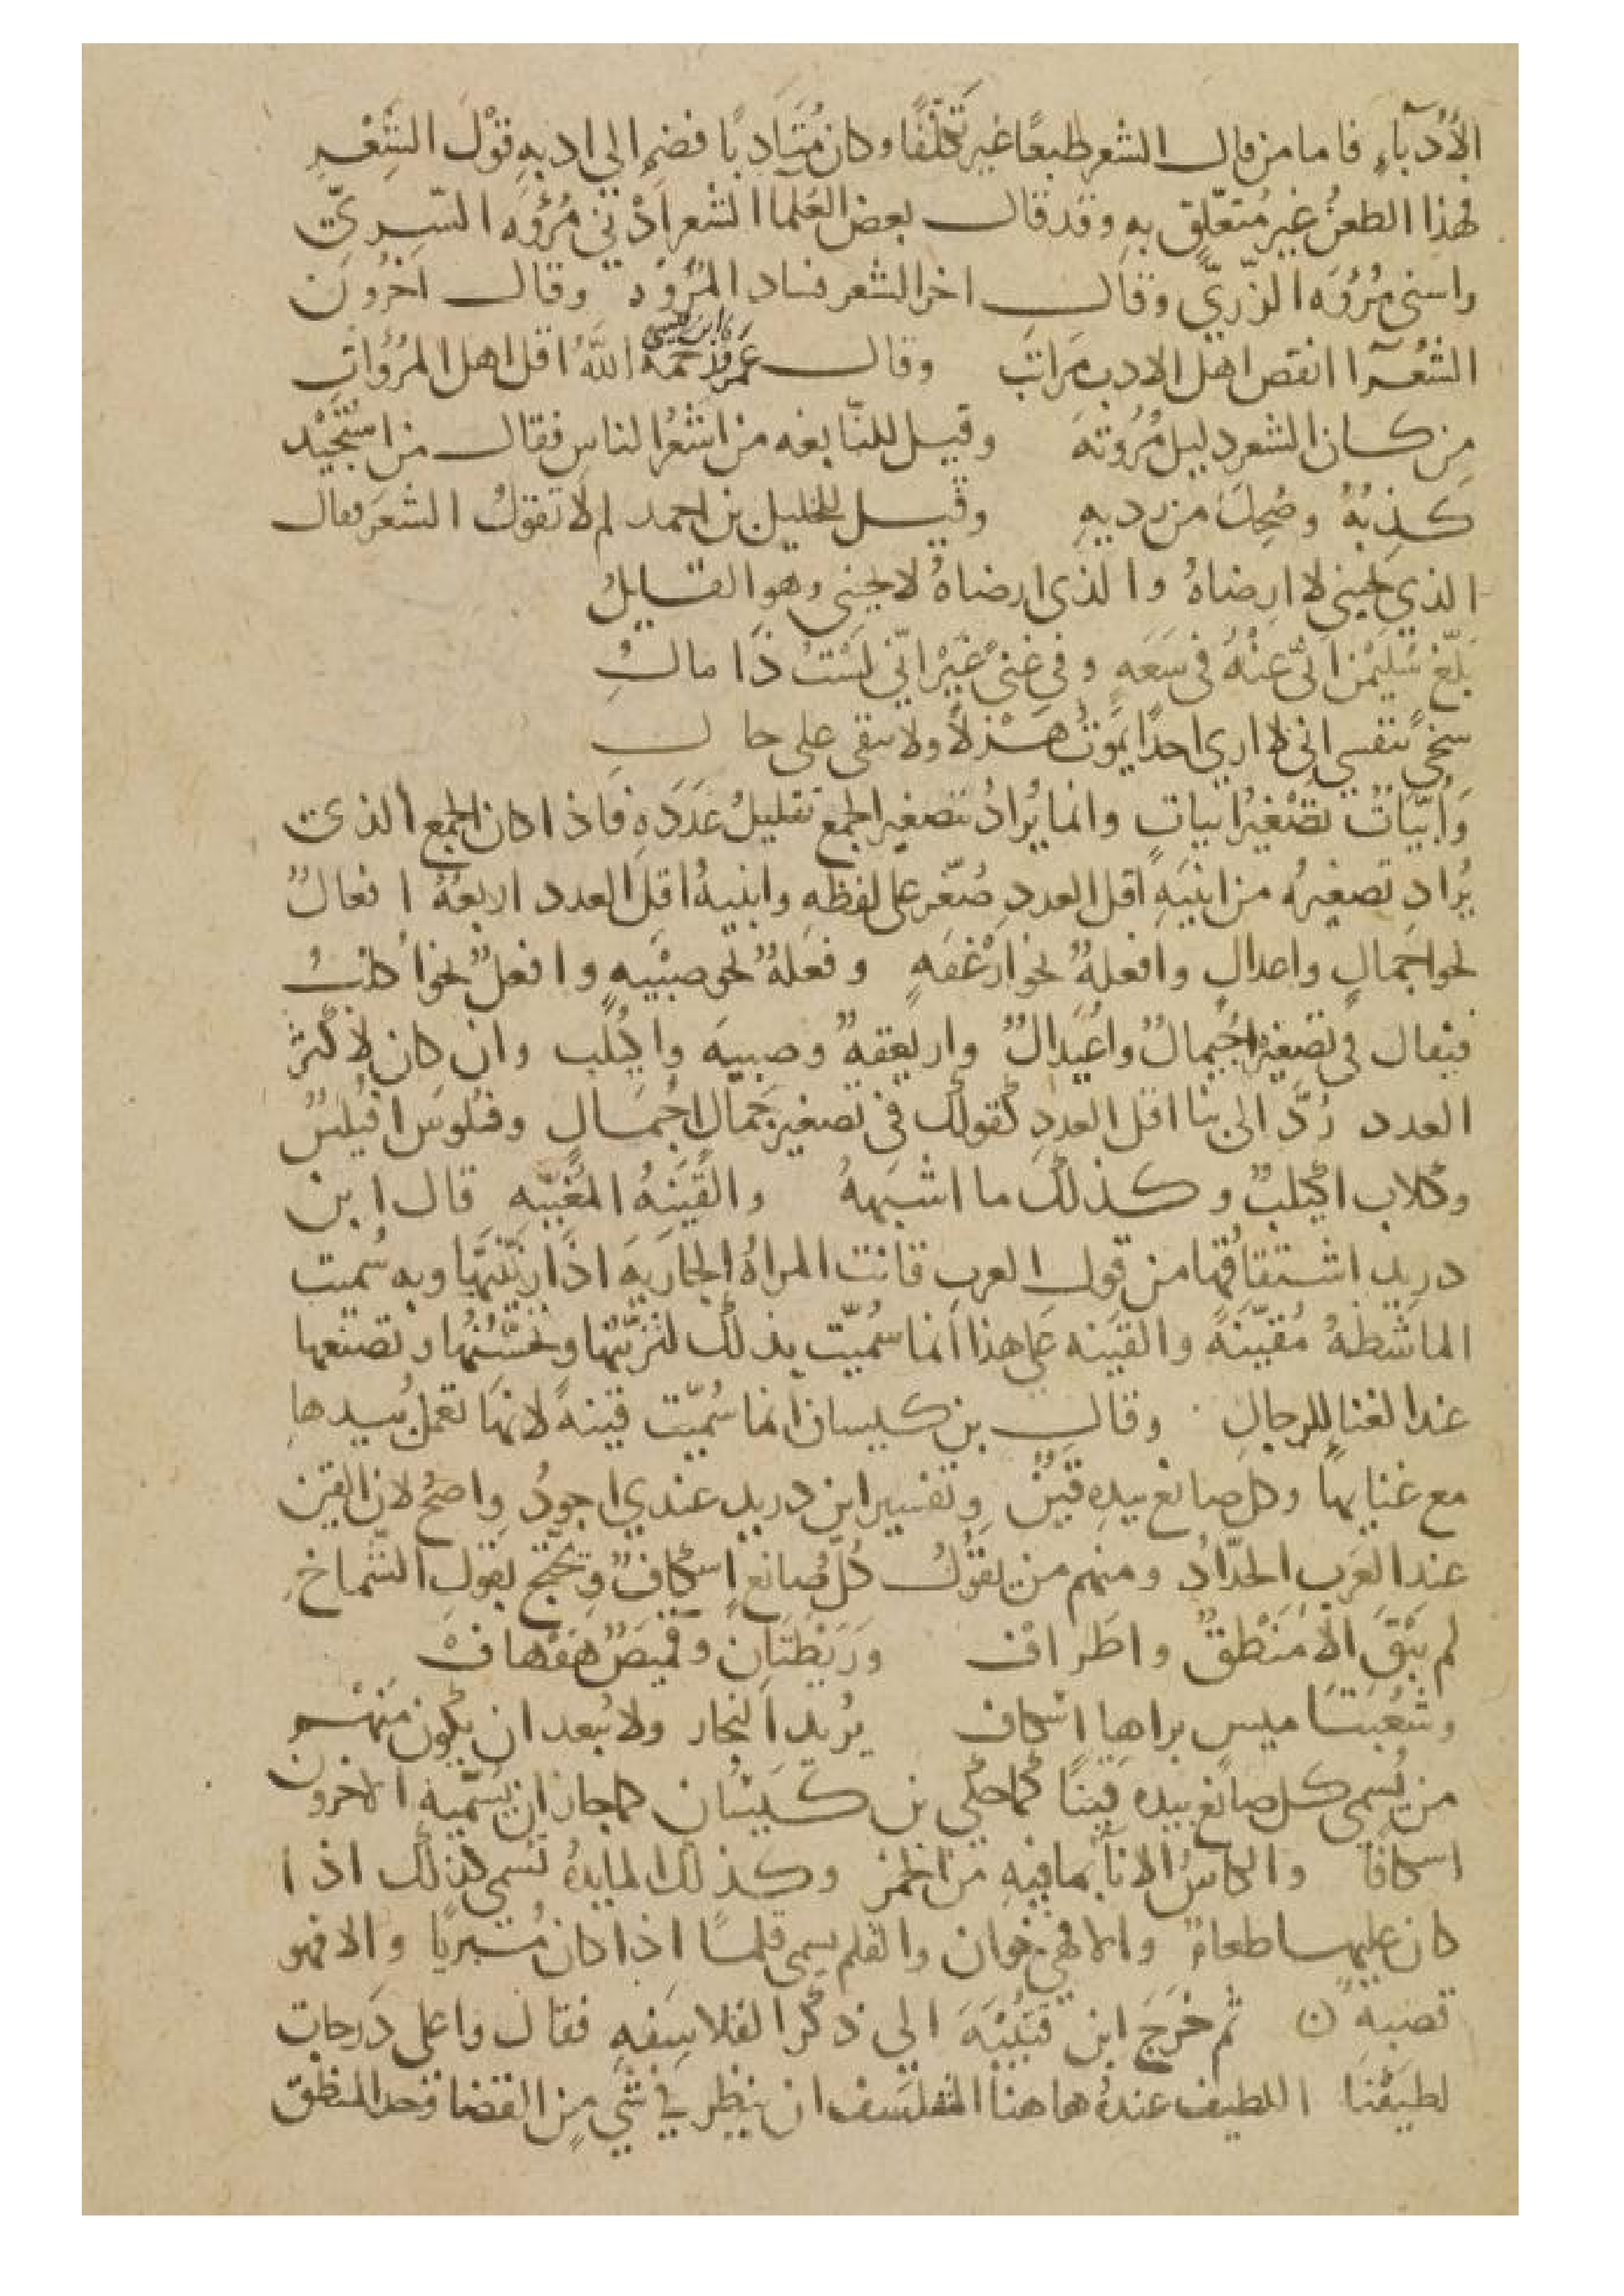 الأُدَبآءِ فاما من قال الشعر طبعًا غير تَكلّفًا وكان مُتَادِبًا فضم الى ادبهِ قَوْلَ الشِّعْرِ
فهذا الطعنُ غير مُتعلّقٍ بهِ وقد قال بعض العُلما الشعر اَدْني مُرُوَه السّرِيّ
واسنى مُرُوَه الزّرِيّ وقال اخر الشعر فساد المُرُوَه وقال اخَرُونَ
الشُعرآ انقص اهل الادب مَراتبَ وقال عَمرو رَحمهُ اللهُ اقل اهل المُرُوَاتِ
من كان الشعر دليل مُرُوَتهَ وقيل للنّابغه من اشعَرُ الناس فقال من اسْتُجِيْد
كَذِبُهُ وضُحِكَ من رديهِ وقيل للخليل بن احمد لم لا تقولُ الشعرَ فقال
الذي يجيني لا ارضاهُ والذي ارضاهُ لا يجيني وهو القايلُ
بَلّغ سُليمْنَ انّى عَنْهُ فى سَعَهٍ وفي غِنىً غَيْرَ انّي لَسْتُ ذَا مالِ
سخىً بنفسي انى لا اري احدًا يَمُوتُ هَزْلًا ولا يبقى على حالِ
وَأُبَيّاتٌ تَصْغيرُ ابياتٍ وانما يُرادُ بتصغير الجمع تقليلُ عَدَدَهِ فاذا كان الجمع الذي
يُراد تصغيرُه من ابنيَهِ اقل العددِ صُغّر على لفظهِ وابنيهُ اقل العدد اربعُهُ افعالٌ
نحو اجمالٍ واعدالٍ وافعلهٌ نحو ارْغفَهٍ وفعلهٌ نحو صبْيَهٍ وافعلٌ نحو اكلبٍ
فيقال في تصغيرها اُجيمالٌ واُعَيدالٌ واريغفهٌ وصبيهَ واكيلب وان كان لاكثر
العدد رُدَّ الى بنا اقل العددِ كقولك في تصغير جمالٍ اُجيمالٍ وفلوسَ افيلسٌ
وكلاب اكيلبٌ وكذلك ما اشبهَهُ والقَيْنهُ المغنيّه قال ابن
دريد اشتقاقُها من قول العرب قانت المراهُ الجاريهَ اذا زينّتها وبه سُميت
الماشطهُ مُقيّنهً والقينه على هذا انما سُميّت بذلك لتزيّنُها وتحسّنُها وتصنعها
عند الغنا للرجالِ وقال بن كيسان انما سُميّت قينهً لانها تعمل بيدها
مع غنايها وكل صانع بيدهِ قَينٌ وتفسير ابن دريد عندي اجودُ واصحُ لان القين
عند العَرب الحدّادُ ومنهم من يقولُ كلّ صانع اِسكافٌ ويحتج بقول الشماخِ
لم يَبْقَ الّا مَنْطقٌ واطَرافْ ورَيْطتانِ وقميصٌ هَفهافْ
وشُعْبَتَا ميس براها اسكاف يُريد النجار ولا يُبعد ان يكون منهم
من يُسمى كل صانع بيده قينًا كما حكي بن كَيْسان كما جاز ان يُسميه الاخرون
اسكافًا والكاسُ الانآ بما فيهِ من الخمر وكذلك المايدهُ تُسمى كذلك اذا
كان عليها طعامٌ والا فهى خوان والقلم يسمى قلمًا اذا كان مُبريًا والا فهو
قصبهٌ ثُمَّ خَرَجَ ابن قُتَيْبَهَ الى ذكر الفلاسفهِ فقال واعلى دَرجات
لطيَفْنَا اللطيف عندهُ هاهنا المتفلسف ان ينظر في شي من القضا وحد المنطق